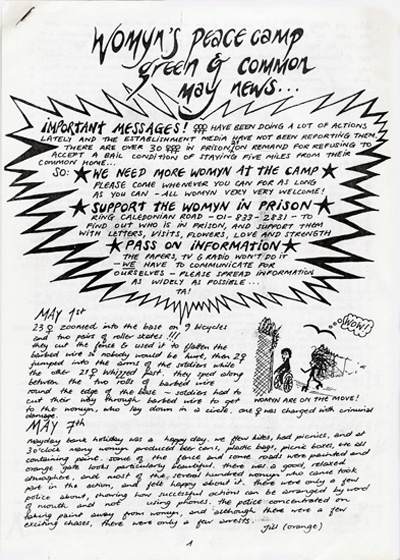 Womyn's peace camp
green & common
may news...
IMPORTANT MESSAGES! ♀♀♀ HAVE BEEN DOING A LOT OF ACTIONS
LATELY AND THE ESTABLISHMENT MEDIA HAVE NOT BEEN REPORTING THEM.
THERE ARE OVER 30 ♀♀♀ IN PRISON ON REMAND FOR REFUSING TO
ACCEPT A BAIL CONDITION OF STAYING FIVE MILES FROM THEIR
COMMON HOME...
SO: ★ WE NEED MORE WOMYN AT THE CAMP ★
PLEASE COME WHENEVER YOU CAN FOR AS LONG
AS YOU CAN - ALL WOMYN VERY VERY WELCOME!
★ SUPPORT THE WOMYN IN PRISON ★
RING CALEDONIAN ROAD - 01-833-2831 - TO
FIND OUT WHO IS IN PRISON, AND SUPPORT THEM
WITH LETTERS, VISITS, FLOWERS, LOVE AND STRENGTH
★ PASS ON INFORMATION ★
THE PAPERS, TV & RADIO WON'T DO IT
- WE HAVE TO COMMUNICATE FOR
OURSELVES - PLEASE SPREAD INFORMATION
AS WIDELY AS POSSIBLE...
TA!
MAY 1st
23 ♀ zoomed into the base on 9 bicycles
and two pairs of roller skates !!!
they cut the fence & used it to flatten the
barbed wire so nobody would be hurt, then 2♀
jumped into the arms of the soldiers while
the other 21♀ whizzed past. they sped along
between the two rolls of barbed wire
round the edge of the base - soldiers had to
cut their way through barbed wire to get
to the womyn, who lay down in a circle. one ♀ was charged with criminal
damage.
WOW!
WOMYN ARE ON THE MOVE!
MAY 7th
mayday bank holiday was a happy day. we flew kites, had picnics, and at
3 o'clock many womyn produced beer cans, plastic bags, picnic boxes, etc all
containing paint. some of the fence and some roads were painted and
orange gate looks particularly beautiful. there was a good, relaxed
atmosphere, and most of the several hundred womyn who came took
part in the action, and felt happy about it. there were only a few
police about, showing how successful actions can be arranged by word
of mouth and not using phones. the police concentrated on
taking paint away from womyn, and although there were a few
exciting chases, there were only a few arrests.
Jill (orange)
1